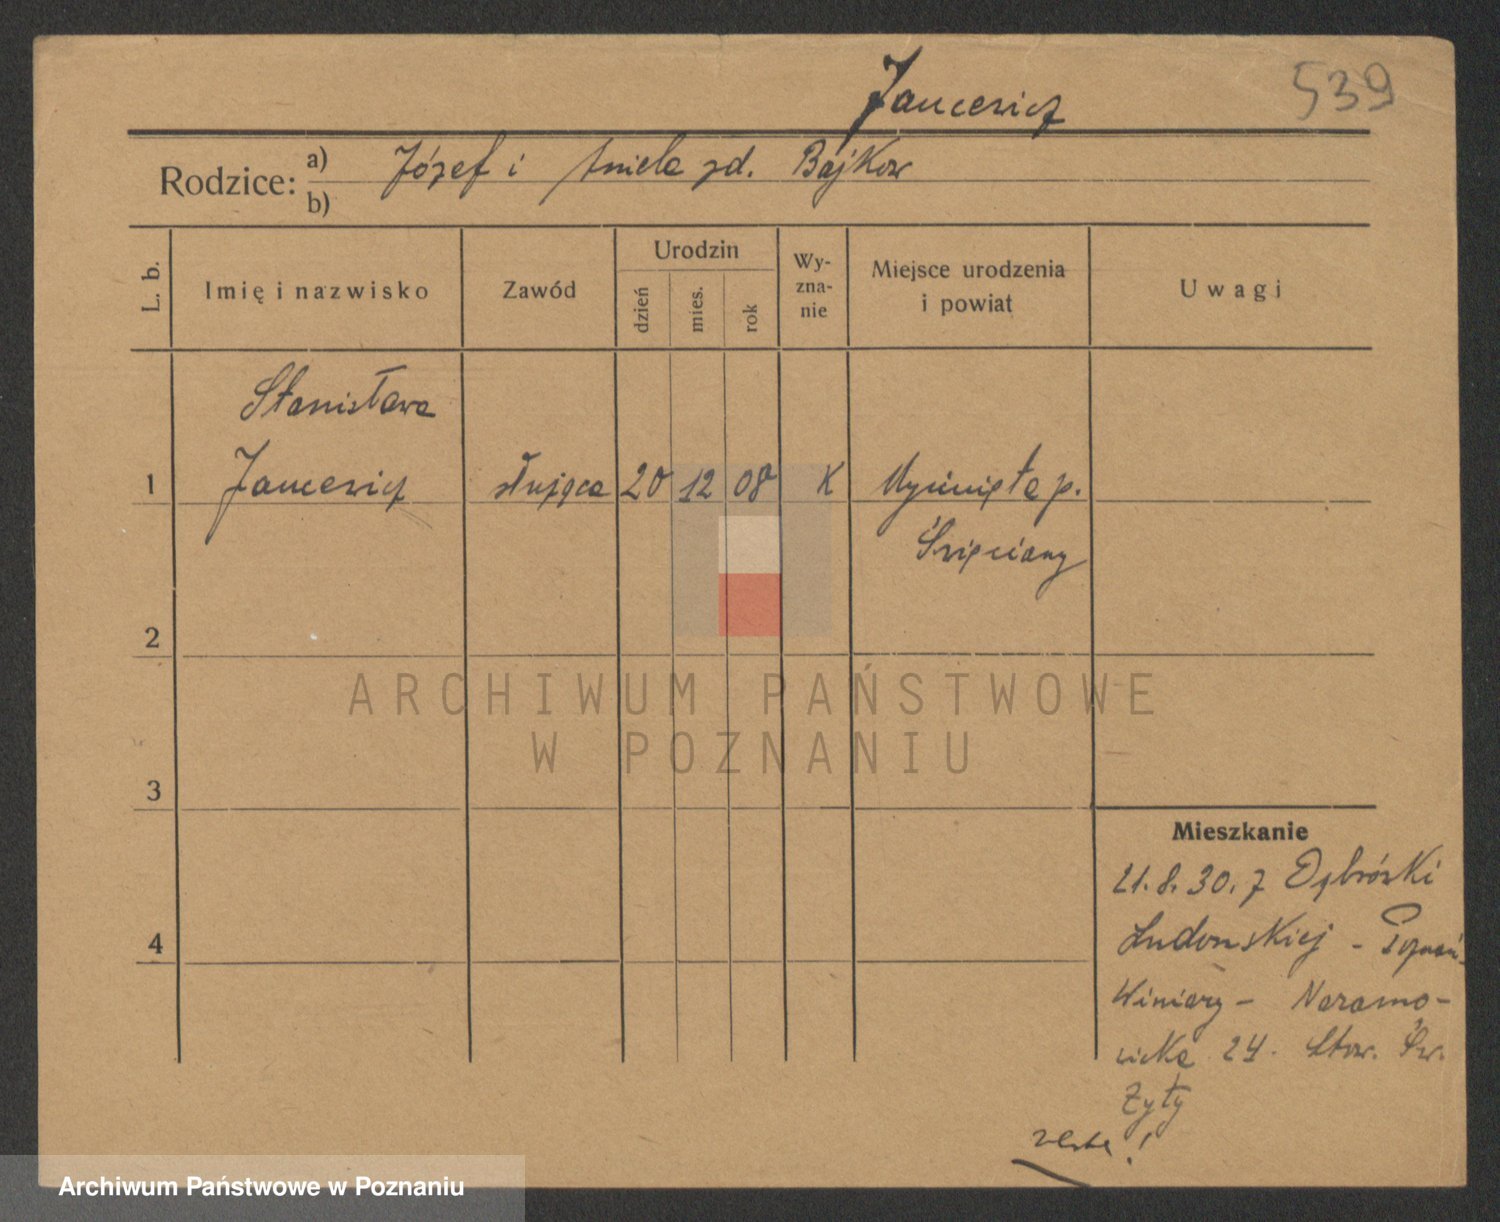 Jancewicz
539
Rodzice: a) Józef i Aniela zd. Bajkow
b)
L. b.
Imię i nazwisko
Zawód
Urodzin
dzień
mies.
rok
Wy-
zna-
nie
Miejsce urodzenia
i powiat
Uwagi
Stanisława
1 Jancewicz służąca 20 12 08 K p.
Święciany
2
3
4
Mieszkanie
21.8.30. z Dąbrówki
Ludomskiej - Poznań-
Winiary - Naramo-
wicka 24. Stow. Św.
Zyty
verte!
ARCHIWUM PAŃSTWOWE
W POZNANIU
Archiwum Państwowe w Poznaniu